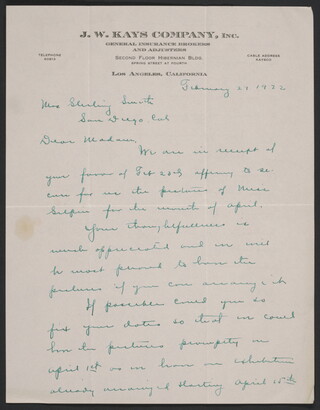 J. W. KAYS COMPANY, INC.
GENERAL INSURANCE BROKERS
AND ADJUSTERS
TELEPHONE
CABLE ADDRESS
SECOND FLOOR HIBERNIAN BLDG.
SPRING STREET AT FOURTH
LOS ANGELES, CALIFORNIA
February 27 1932
San Diego Cal
Dear Madam,
We are in receipt of
your favor of Feb offering to se
cure for us the pictures of
for the month of April.
Your thoughtfulness is
much appreciated and we will
be most pleased to have the
pictures if you can arrange it
If possible could you so
fix your dates so that we could
have the pictures promptly on
April 1st as we have an exhibition
already arranged starting April 15th